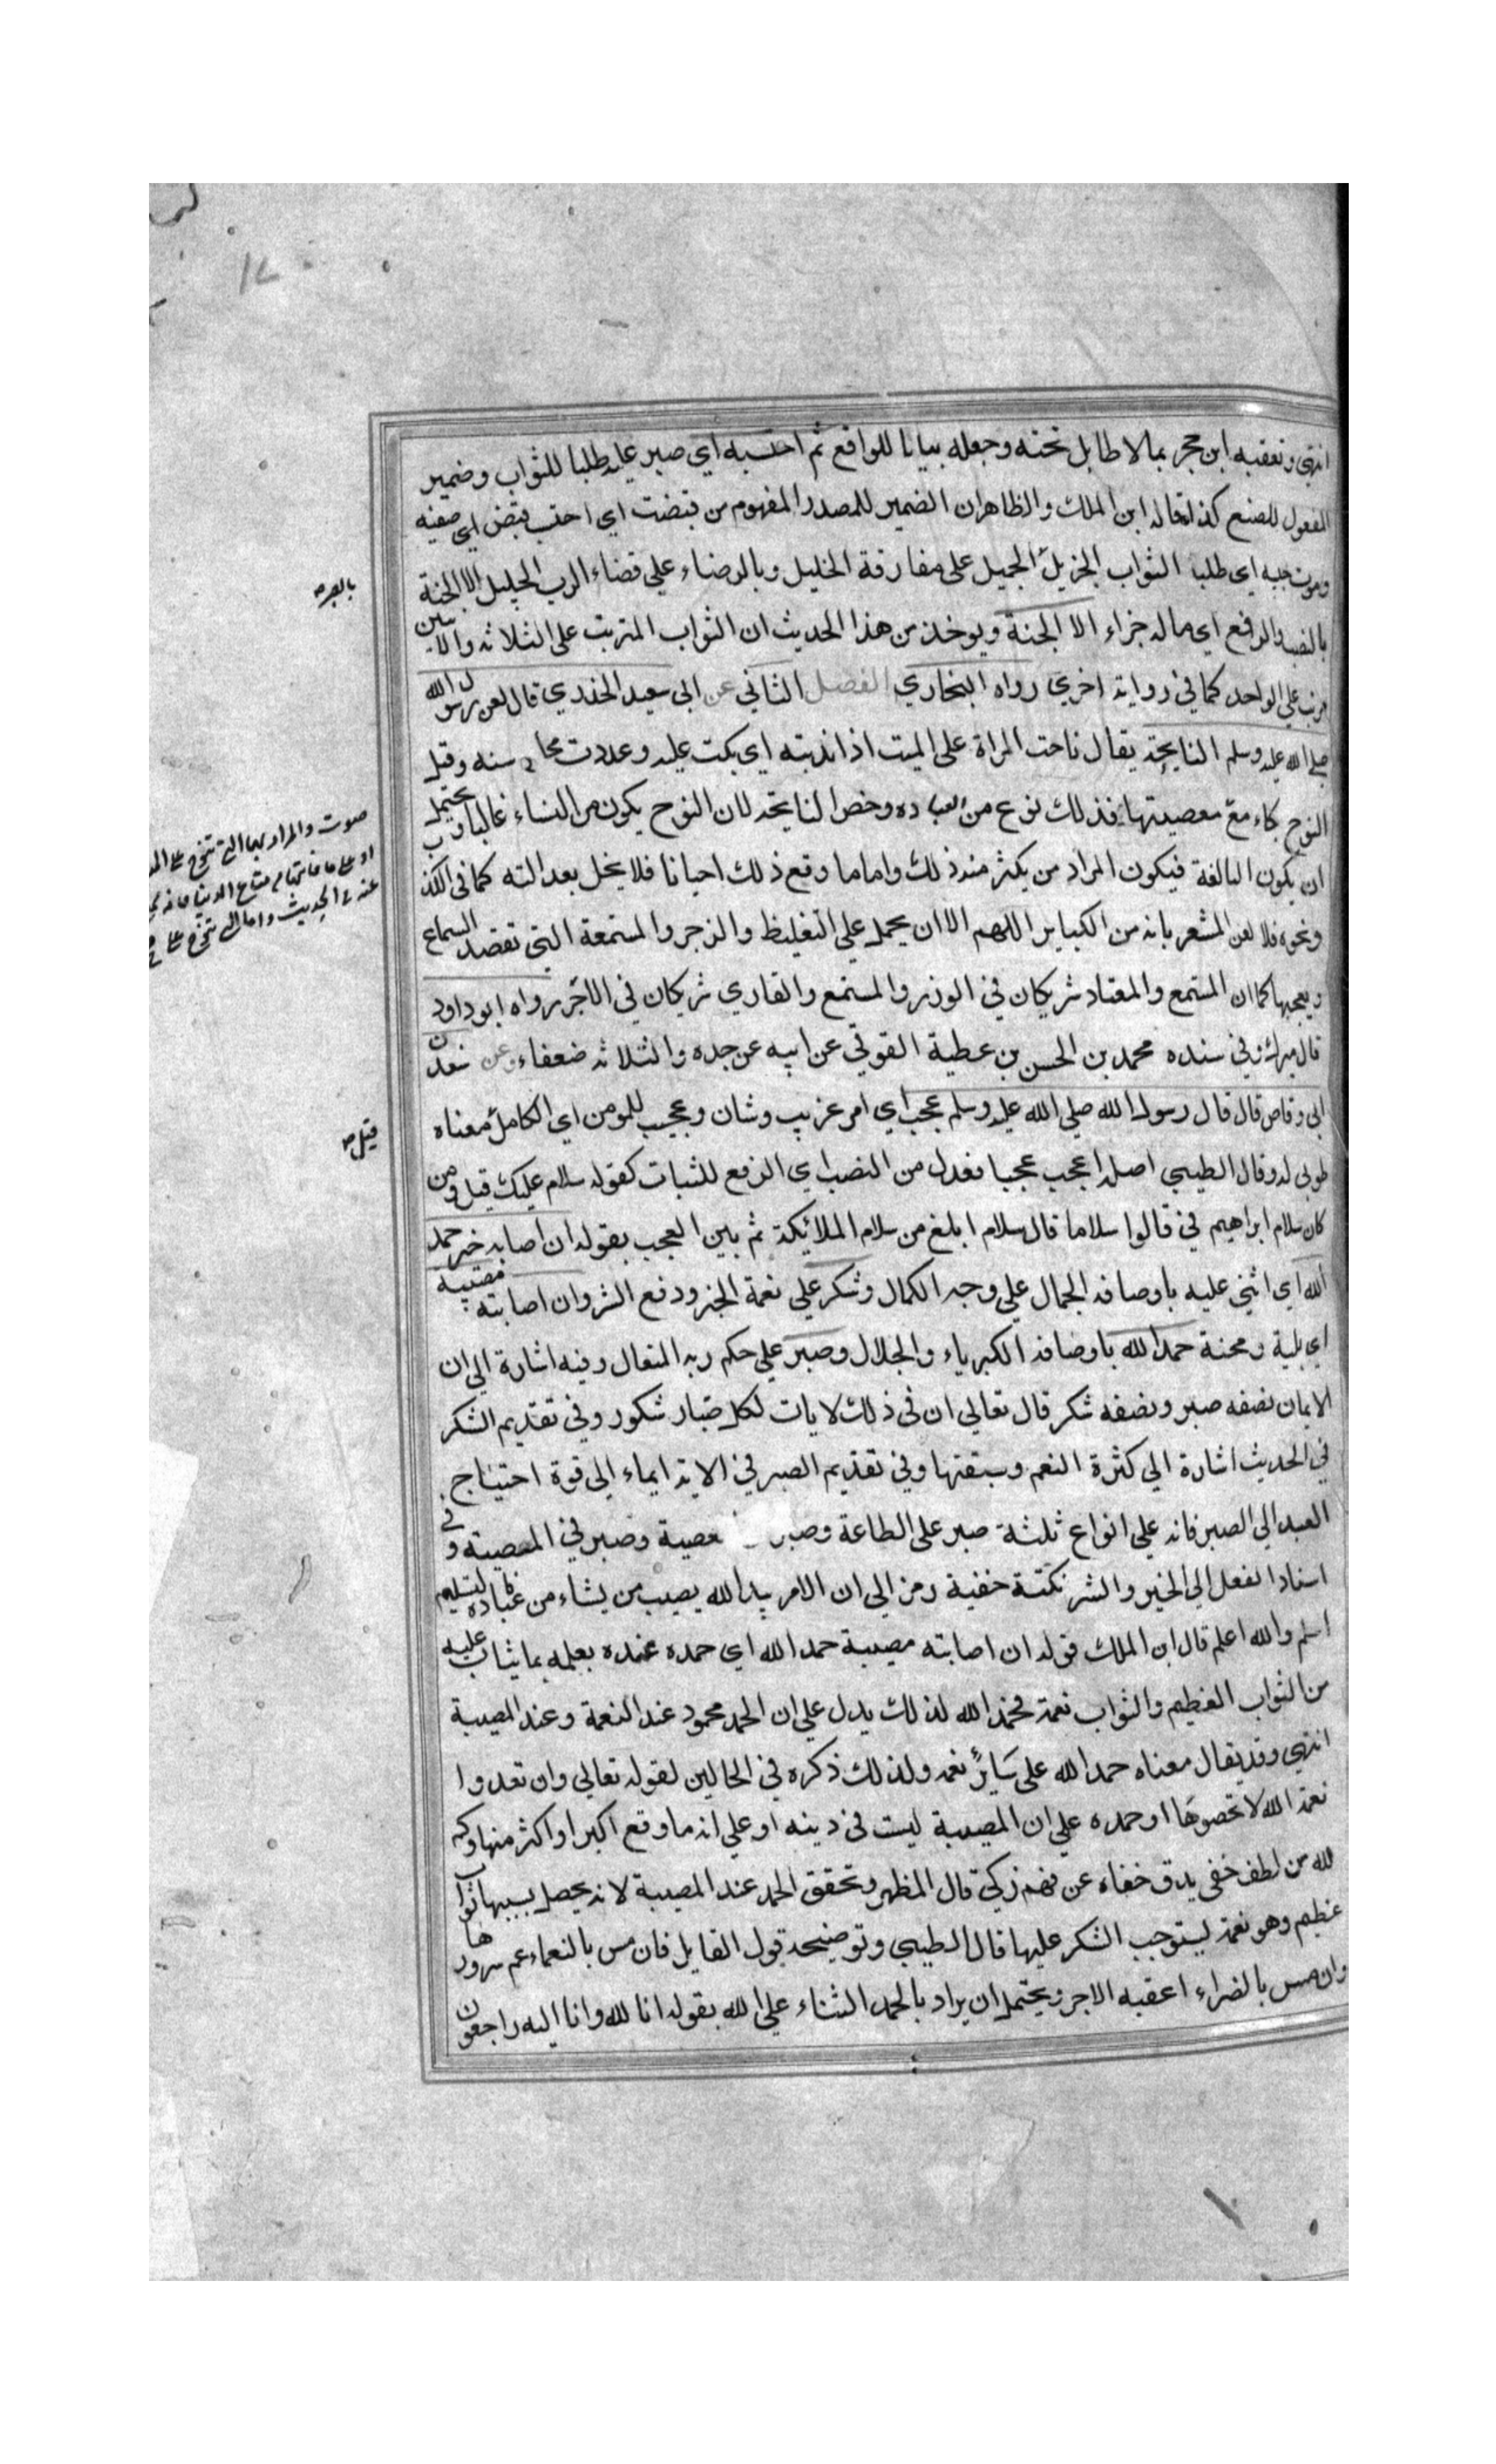 انتهى وتعقبه ابن حجر بما لا طايل تحته وجعله بيانا للواقع ثم احتسبه اي صبر عليه طلبا للثواب وضمير
المفعول للصنع كذا قاله ابن الملك والظاهر ان الضمير للمصدر المفهوم من قبضت اي احتسب قبض اي صفيه
وموت حبيبه اي طلبا الثواب الجزيل الجميل على مفارقة الخليل وبالرضاء علي قضاء الرب الجليل الا الجنة
بالنصب والرفع اي ماله جزاء الا الجنة ويوخذ من هذا الحديث ان الثواب المترتب على الثلاثة والاثنين
مرتب علي الواحد كما في رواية اخري رواه البخاري الفصل الثاني عن ابي سعيد الخدري قال لعن رسول الله
صلى الله عليه وسلم النايحة يقال ناحت المراة على الميت اذا ندبته اي بكت عليه وعددت محاسنه وقيل
النوح بكاء مع معصيتها فذلك نوع من العباده وخص النايحة لان النوح يكون من النساء غالبا ويحتمل
ان يكون البالغة فيكون المراد من يكثر منه ذلك واما ما وقع ذلك احيانا فلا يخل بعدالته كما في الكذ
ونحوه فلا لعن المشعر بانه من الكباير اللهم الا ان يحمل علي التغليظ والزجر والمستمعة التي تقصد السماع
ويعجبها كما ان المستمع والمعتاد شريكان في الوزر والمستمع والقاري شريكان في الاجر رواه ابو داود
قال ميرك وفي سنده محمد بن الحسن بن عطية القوفي عن ابيه عن جده والثلاثة ضعفاء وعن سعد بن
ابي وقاص قال قال رسول الله صلي الله عليه وسلم عجب اي امر غريب وشان وعجيب للمومن اي الكامل معناه
طوبى له وقال الطيبي اصله اعجب عجبا فعدل من النصب اي الرفع للثبات كقوله سلام عليك قيل ومن
كان سلام ابراهيم في قالوا سلاما قال سلام ابلغ من سلام الملائكة ثم بين العجب بقوله ان اصابه خير حمد
الله اي اثني عليه باوصافه الجمال علي وجه الكمال وشكر علي نعمة الخير ودفع الشر وان اصابته مصيبة
اي بلية ومحنة حمد الله باوصافه الكبرياء والجلال وصبر علي حكم ربه المتعال وفيه اشارة الي ان
الايمان نصفه صبر ونصفه شكر قال تعالي ان في ذلك لايات لكل صبار شكور وفي تقديم الشكر
في الحديث اشارة الي كثرة النعم وسبقتها وفي تقديم الصبر في الاية ايماء الي قوة احتياج
العبد الي الصبر فانه علي انواع ثلثة صبر على الطاعة وصبر عصية وصبر في المصيبة وفي
اسناد الفعل الي الخير والشر نكتة خفية رمز الي ان الامر بيد الله يصيب من يشاء من عباده فالتسليم
اسلم والله اعلم قال ابن الملك قوله ان اصابته مصيبة حمد الله اي حمده عنده بعلمه بما يثاب عليه
من الثواب العظيم والثواب نعمة فحمد الله لذلك يدل علي ان الحمد محمود عند النعمة وعند المصيبة
انتهي وقد يقال معناه حمد الله على سائر نعمه ولذلك ذكره في الحالين لقوله تعالي وان تعدوا
نعمة الله لا تحصوها او حمده علي ان المصيبة ليست في دينه او علي انه ما وقع اكبر او اكثر منها وكم
لله من لطف خفي يدق خفاه عن فهم زكي قال المظهر وتحقق الحمد عند المصيبة لانه يحصل بسببها ثواب
عظيم وهو نعمة يستوجب الشكر عليها قال الطيبي وتوضيحه قول القايل فان مس بالنعماء عم سرورها
وان مس بالضراء اعقبه الاجر ويحتمل ان يراد بالحمد الثناء علي الله بقوله انا لله وانا اليه راجعون
بالصبر
صوت والمراد بها التي تنوح على
عنه في الحديث واما التي تنوح على
قيل